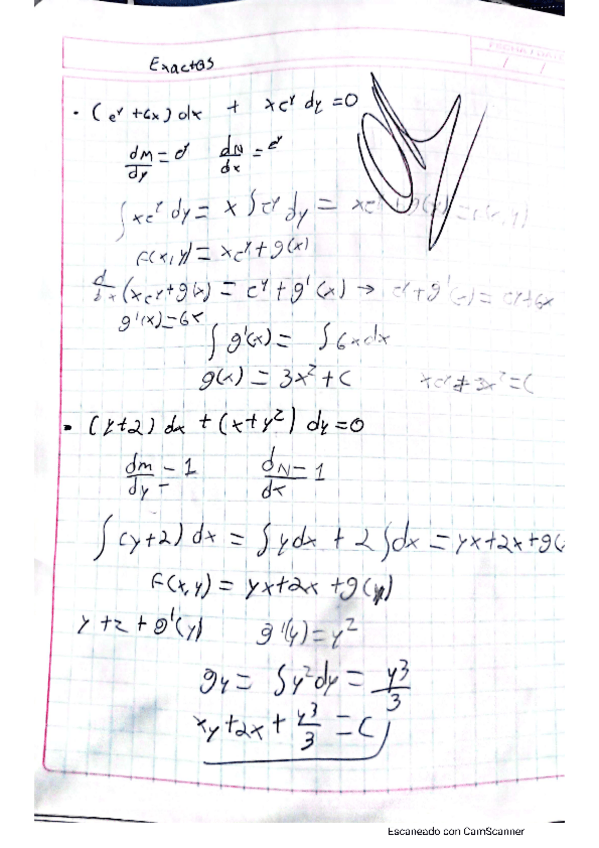 Exactas
• (e^y + 6x) dx + xe^y dy = 0
dM/dy = e^y dN/dx = e^y
∫ xe^y dy = x ∫ e^y dy =
F(x,y) = xe^y + g(x)
d/dx (xe^y + g(x)) = e^y + g'(x) → e^y + g'(x) = e^y + 6x
g'(x) = 6x
∫ g'(x) = ∫ 6x dx
g(x) = 3x² + C
• (y+2) dx + (x+y²) dy = 0
dm/dy = 1 dN/dx = 1
∫ (y+2) dx = ∫ y dx + 2 ∫ dx = yx + 2x + g(
F(x,y) = yx + 2x + g(y)
y + 2 + g'(y) g'(y) = y²
gy = ∫ y² dy = y³/3
xy + 2x + y³/3 = C
Escaneado con CamScanner